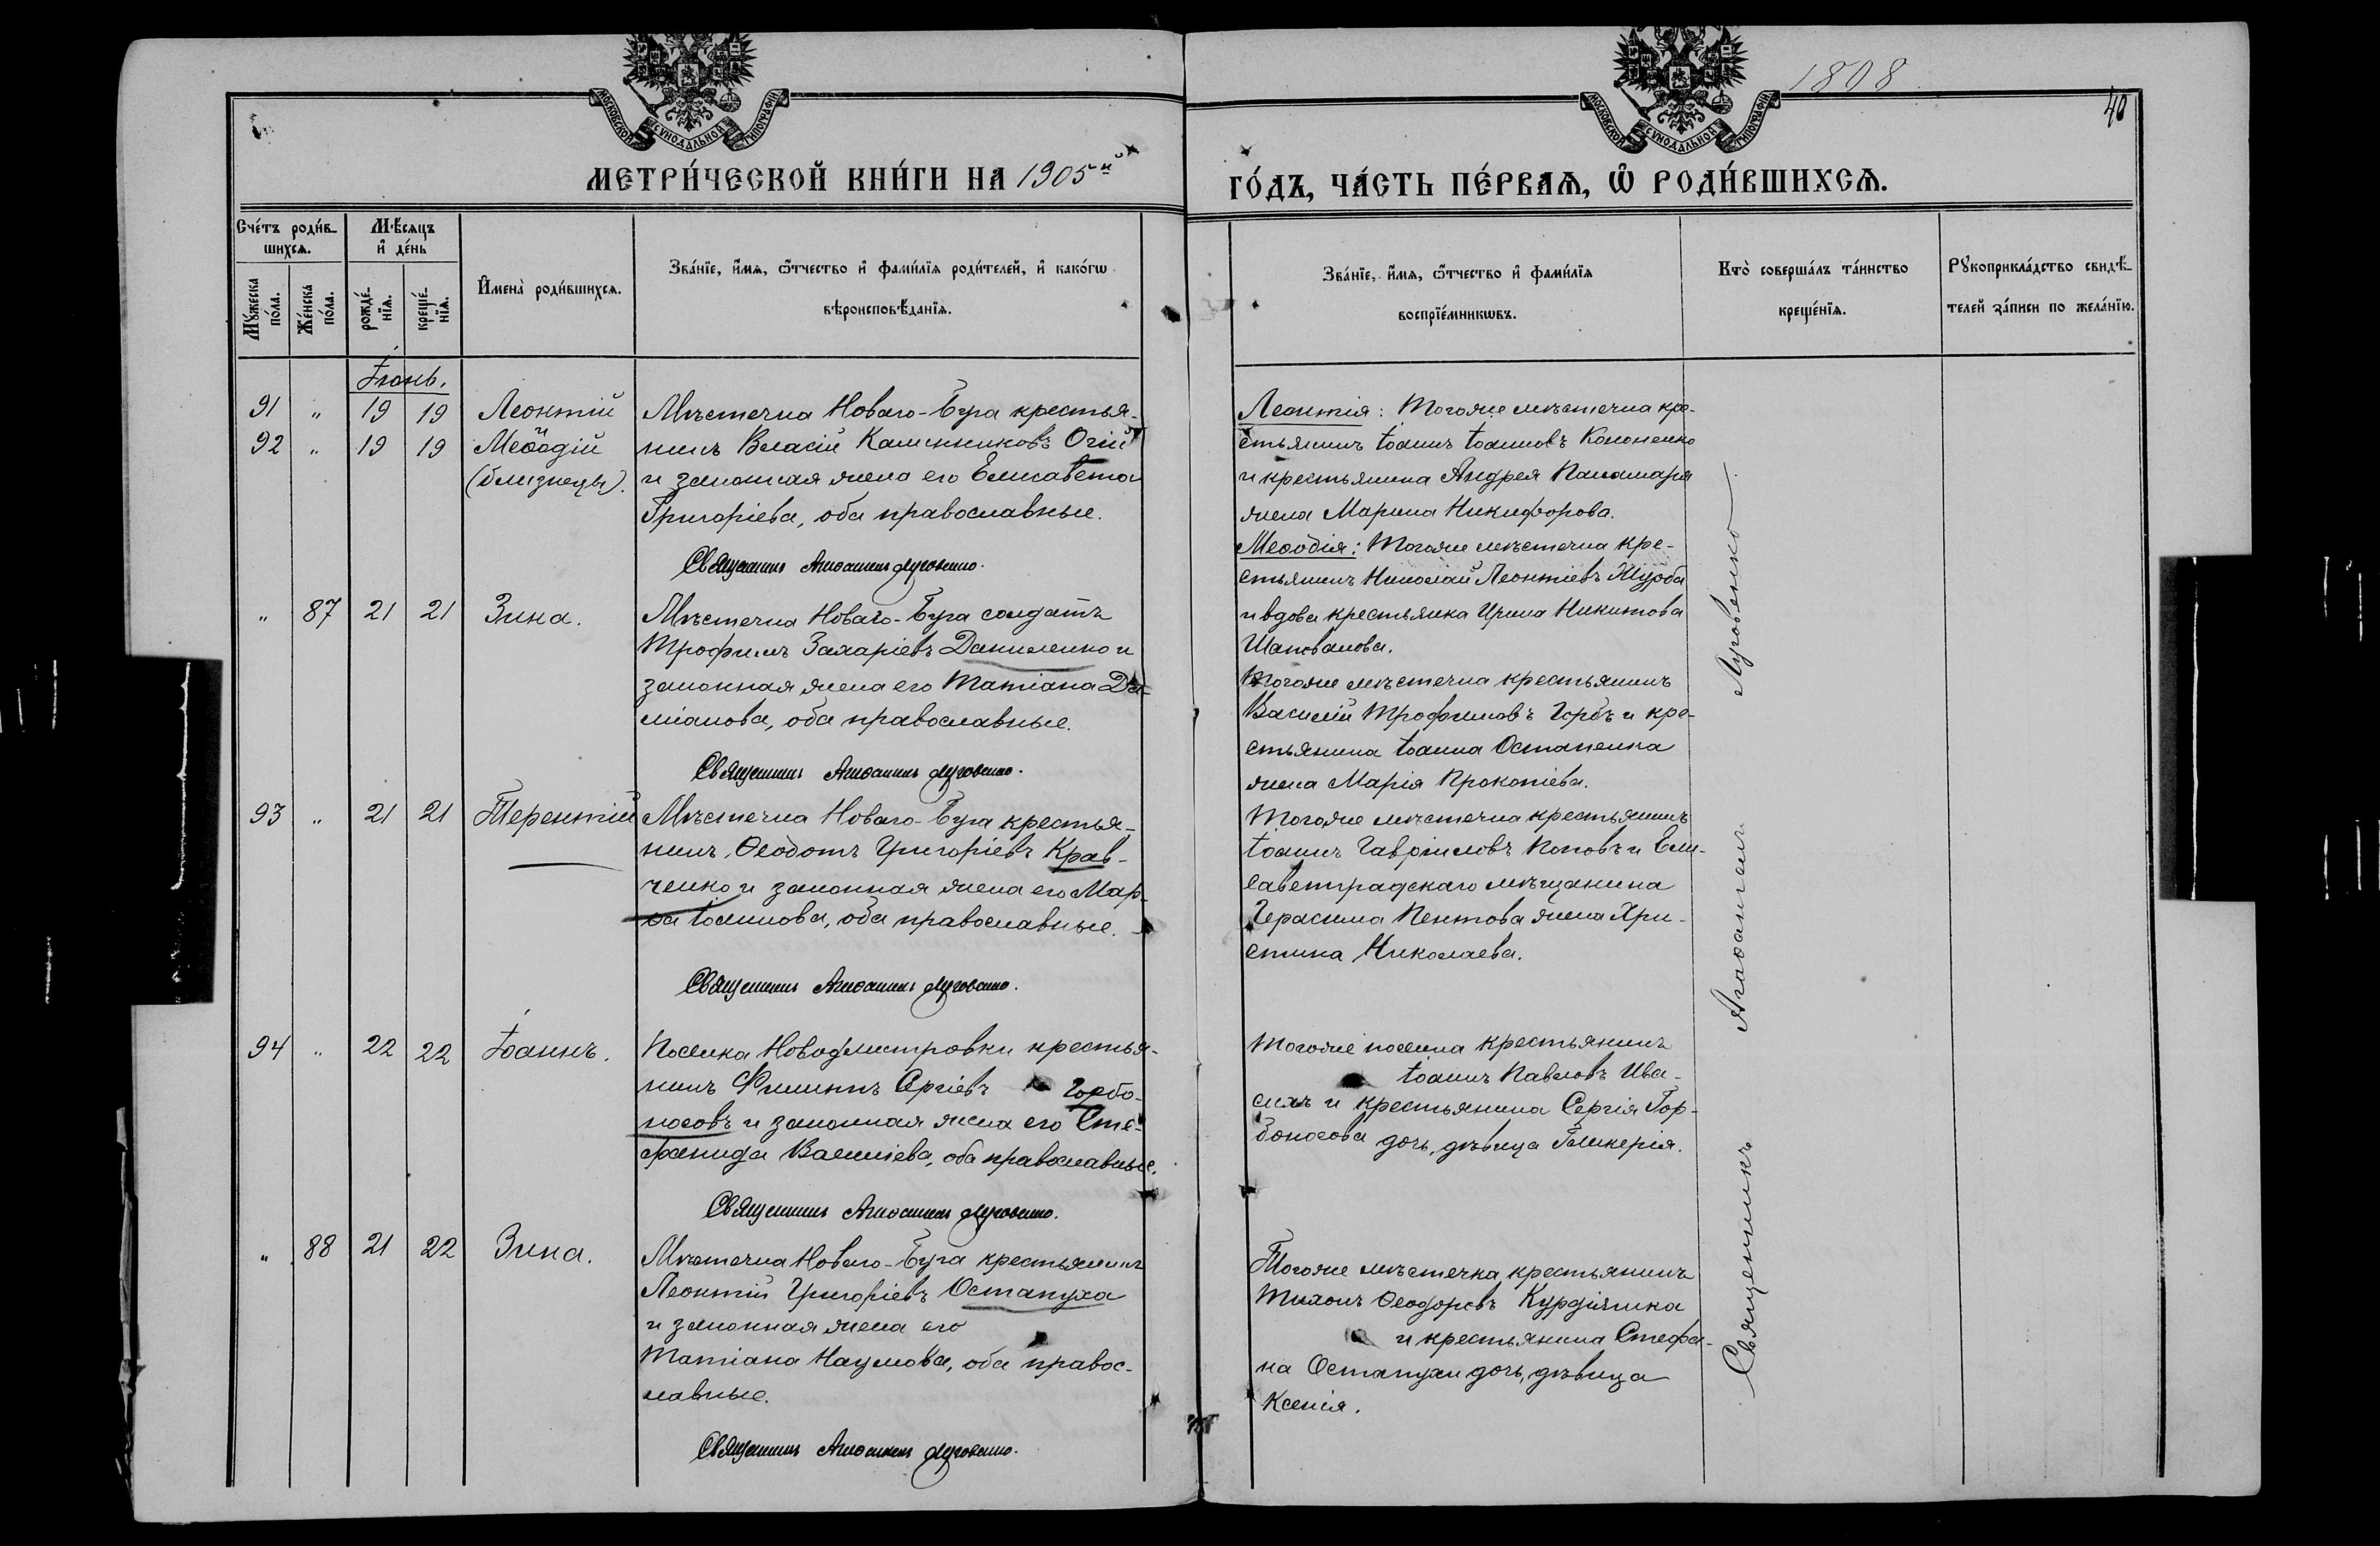 1808
40
МОСКОВСКОЙ СУНОДАЛЬНОЙ ТИПОГРАФІИ
МОСКОВСКОЙ СУНОДАЛЬНОЙ ТИПОГРАФІИ
МЕТРИ́ЧЕСКОЙ КНИ́ГИ НА 1905й
ГО́ДЪ, ЧА́СТЬ ПЕ́РВАѦ, Ѡ РОДИ́ВШИХСѦ.
Сче́тъ роди́в-
шихсѧ.
Мꙋ́жеска по́ла.
Же́нска по́ла.
Мѣ́сѧцъ
и҆ де́нь
рожде́-
нїѧ.
креще́-
нїѧ.
И҆мена̀ роди́вшихсѧ.
Зва́нїе, и҆́мѧ, ѻ҆́тчество и҆ фами́лїѧ роди́телей, и҆ како́гѡ
вѣроисповѣ́данїѧ.
Зва́нїе, и҆́мѧ, ѻ҆́тчество и҆ фами́лїѧ
воспрїе́мникѡвъ.
Кто̀ соверша́лъ та́инство
креще́нїѧ.
Рꙋкоприкла́дство свидѣ́-
телей за́писи по жела́нїю.
Іюнь.
91 " 19 19 Леонтій
и
92 " 19 19 Меѳодій
(близнецы).
Мѣстечка Новаго-Буга крестья-
нинъ Власій Калинниковъ Огій
и законная жена его Елисавета
Григоріева, оба православные.
Священникъ Агаѳангелъ Луговенко.
Леонтія: Тогоже мѣстечка кре-
стьянинъ Іоаннъ Іоанновъ Кононенко
и крестьянина Андрея Паламаря
жена Марина Никифорова.
Меѳодія: Тогоже мѣстечка кре-
стьянинъ Николай Леонтіевъ Журба
и вдова крестьянка Ирина Никитова
Шаповалова.
" 87 21 21 Зина.
Мѣстечка Новаго-Буга солдатъ
Трофимъ Захаріевъ Даниленко и
законная жена его Татіана Да-
міанова, оба православные.
Священникъ Агаѳангелъ Луговенко.
Тогоже мѣстечка крестьянинъ
Василій Трофимовъ Горбъ и кре-
стьянина Іоанна Остапенка
жена Марія Прокопіева.
93 " 21 21 Терентій
Мѣстечка Новаго-Буга крестья-
нинъ Ѳеодотъ Григоріевъ Крав-
ченко и законная жена его Мар-
ѳа Іоаннова, оба православные.
Священникъ Агаѳангелъ Луговенко.
Тогоже мѣстечка крестьянинъ
Іоаннъ Гавріиловъ Поповъ и Ели-
саветградскаго мѣщанина
Герасима Пентова жена Хри-
стина Николаева.
94 " 22 22 Іоаннъ.
Поселка Новодмитровки крестья-
нинъ Филиппъ Сергіевъ Горбо-
носовъ и законная жена его Сте-
фанида Василіева, оба православные.
Священникъ Агаѳангелъ Луговенко.
Тогоже поселка крестьянинъ
Іоаннъ Павловъ Ива-
сихъ и крестьянина Сергія Гор-
боносова дочь, дѣвица Гликерія.
" 88 21 22 Зина.
Мѣстечка Новаго-Буга крестьянинъ
Леонтій Григоріевъ Остапуха
и законная жена его
Татіана Наумова, оба правос-
лавные.
Священникъ Агаѳангелъ Луговенко.
Тогоже мѣстечка крестьянинъ
Тихонъ Ѳеодоровъ
и крестьянина Стефа-
на Остапухи дочь, дѣвица
Ксенія.
Священникъ Агаѳангелъ Луговенко